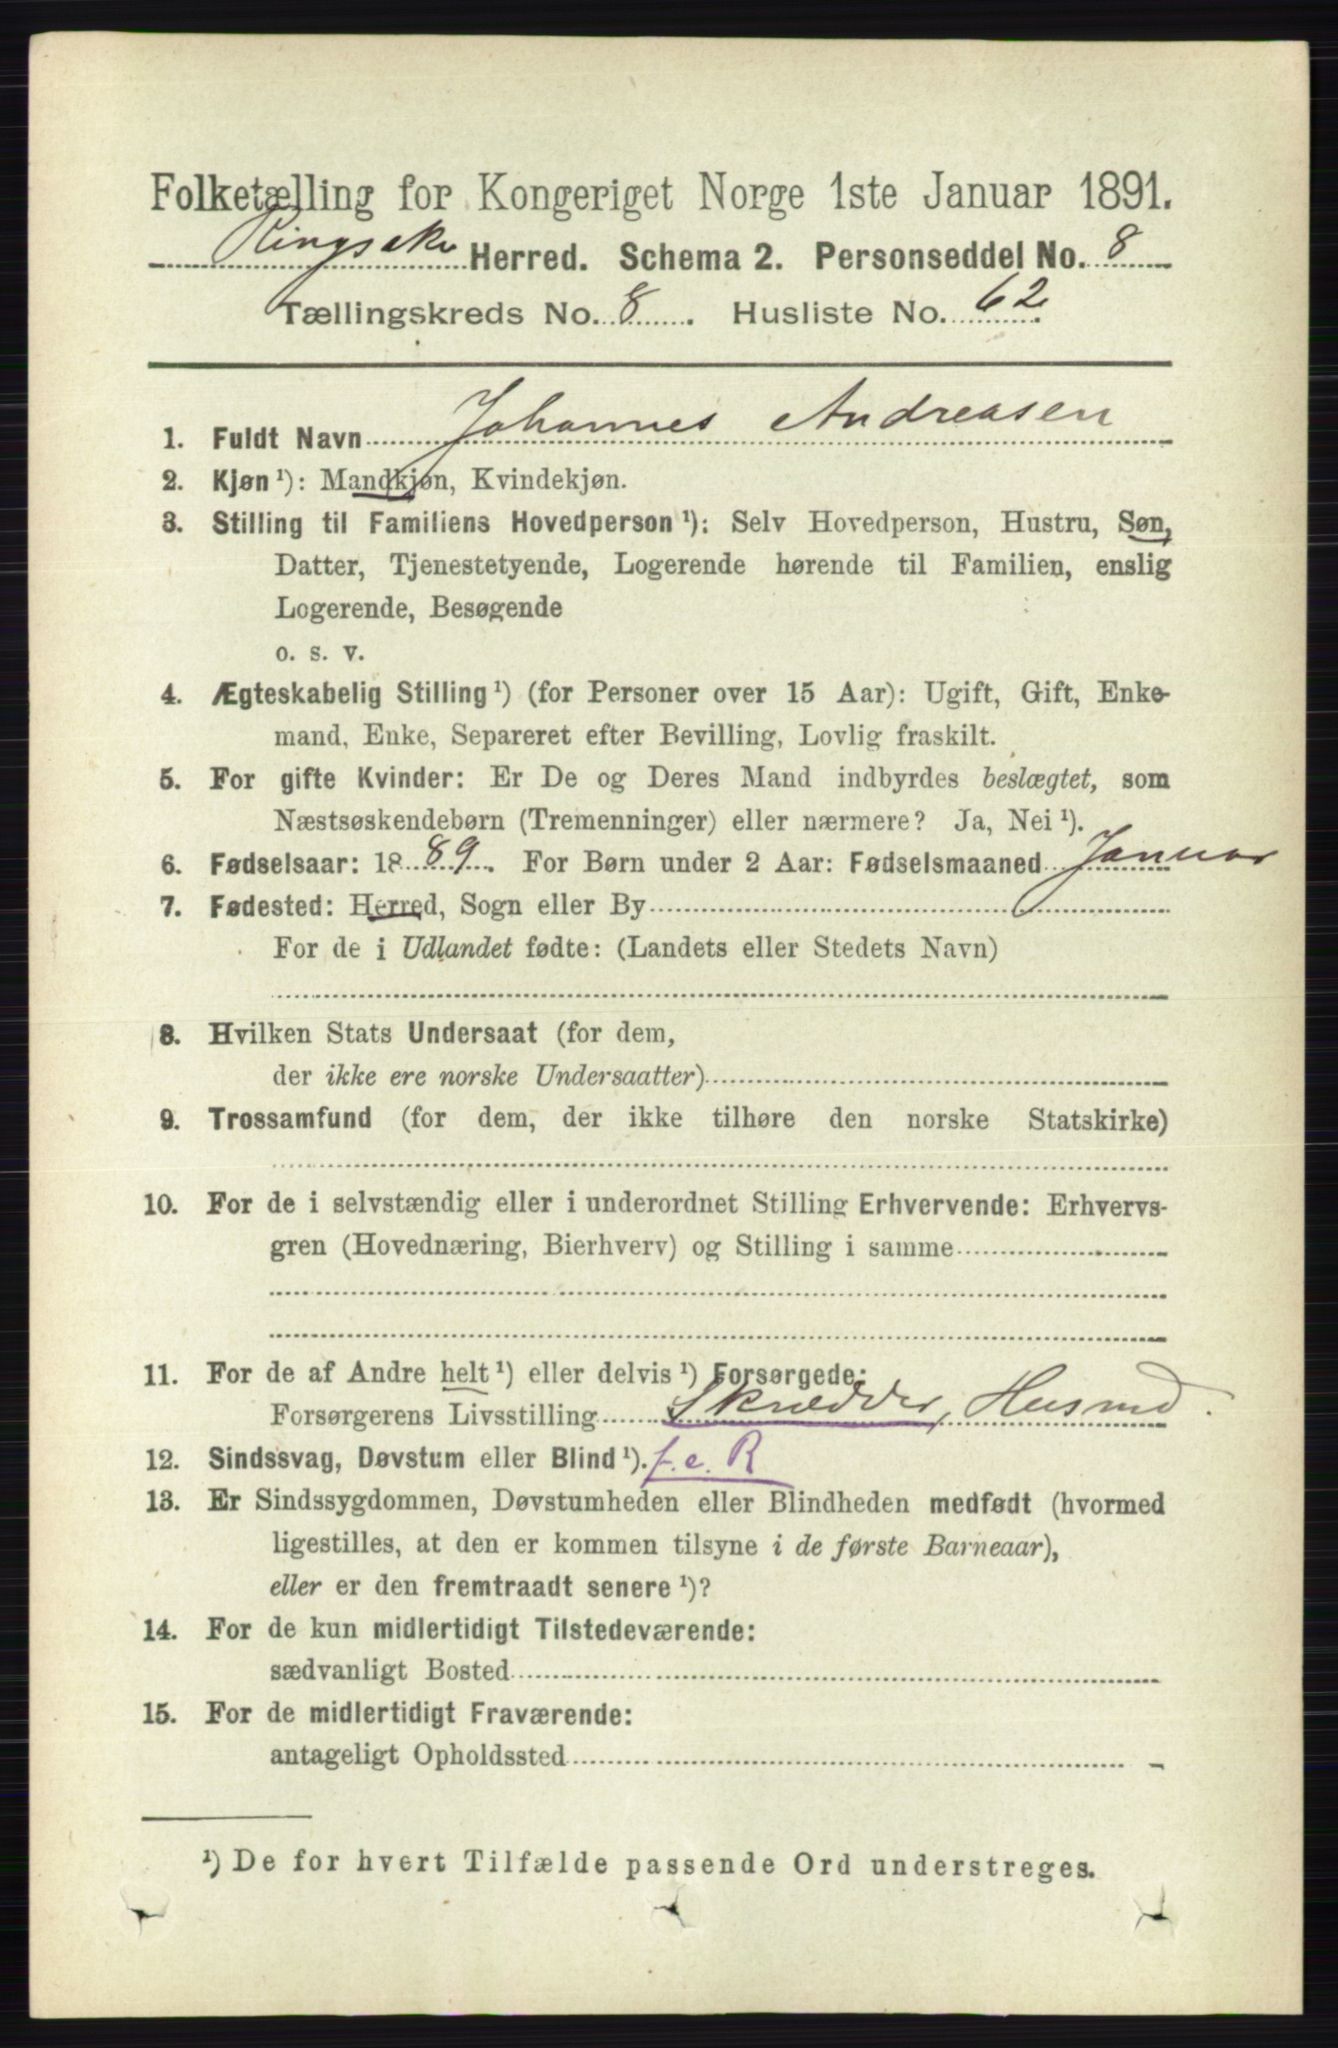 Folketælling for Kongeriget Norge 1ste Januar 1891.
Ringsaker Herred. Schema 2. Personseddel No. 8
Tællingskreds No. 8. Husliste No. 62
1. Fuldt Navn Johannes Andreasen
2. Kjøn ¹): Mandkjøn, Kvindekjøn.
3. Stilling til Familiens Hovedperson ¹): Selv Hovedperson, Hustru, Søn,
Datter, Tjenestetyende, Logerende hørende til Familien, enslig
Logerende, Besøgende
o. s. v.
4. Ægteskabelig Stilling ¹) (for Personer over 15 Aar): Ugift, Gift, Enke-
mand, Enke, Separeret efter Bevilling, Lovlig fraskilt.
5. For gifte Kvinder: Er De og Deres Mand indbyrdes beslægtet, som
Næstsøskendebørn (Tremenninger) eller nærmere? Ja, Nei ¹).
6. Fødselsaar: 1889. For Børn under 2 Aar: Fødselsmaaned Januar
7. Fødested: Herred, Sogn eller By
For de i Udlandet fødte: (Landets eller Stedets Navn)
8. Hvilken Stats Undersaat (for dem,
der ikke ere norske Undersaatter)
9. Trossamfund (for dem, der ikke tilhøre den norske Statskirke)
10. For de i selvstændig eller i underordnet Stilling Erhvervende: Erhvervs-
gren (Hovednæring, Bierhverv) og Stilling i samme
11. For de af Andre helt ¹) eller delvis ¹) Forsørgede:
Forsørgerens Livsstilling Skrædder, Husmd.
12. Sindssvag, Døvstum eller Blind ¹). f. e. R
13. Er Sindssygdommen, Døvstumheden eller Blindheden medfødt (hvormed
ligestilles, at den er kommen tilsyne i de første Barneaar),
eller er den fremtraadt senere ¹)?
14. For de kun midlertidigt Tilstedeværende:
sædvanligt Bosted
15. For de midlertidigt Fraværende:
antageligt Opholdssted
¹) De for hvert Tilfælde passende Ord understreges.